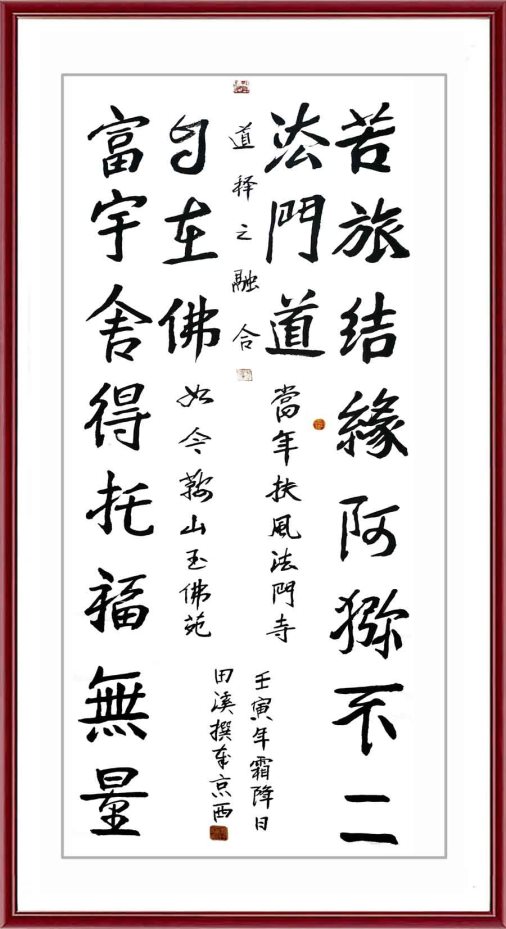 苦旅结緣阿猕不二
法門道
當年扶風法門寺
道择之融合
自在佛
如今鞍山玉佛苑
富宇舍得托福無量
壬寅年霜降日
田溪撰奉京西